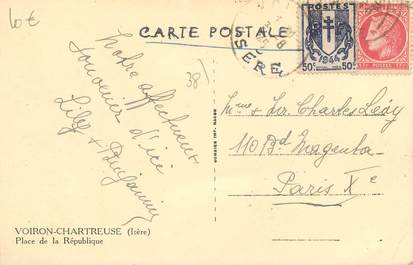 10€
CARTE POSTALE
38
ISERE
POSTES
50c 1944 50c
Notre affectueux
souvenir d'ici
Lily + Benjamin
Mme + Mr. Charles Lévy
110 Bd Magenta
Paris Xe
VOIRON-CHARTREUSE (Isère)
Place de la République